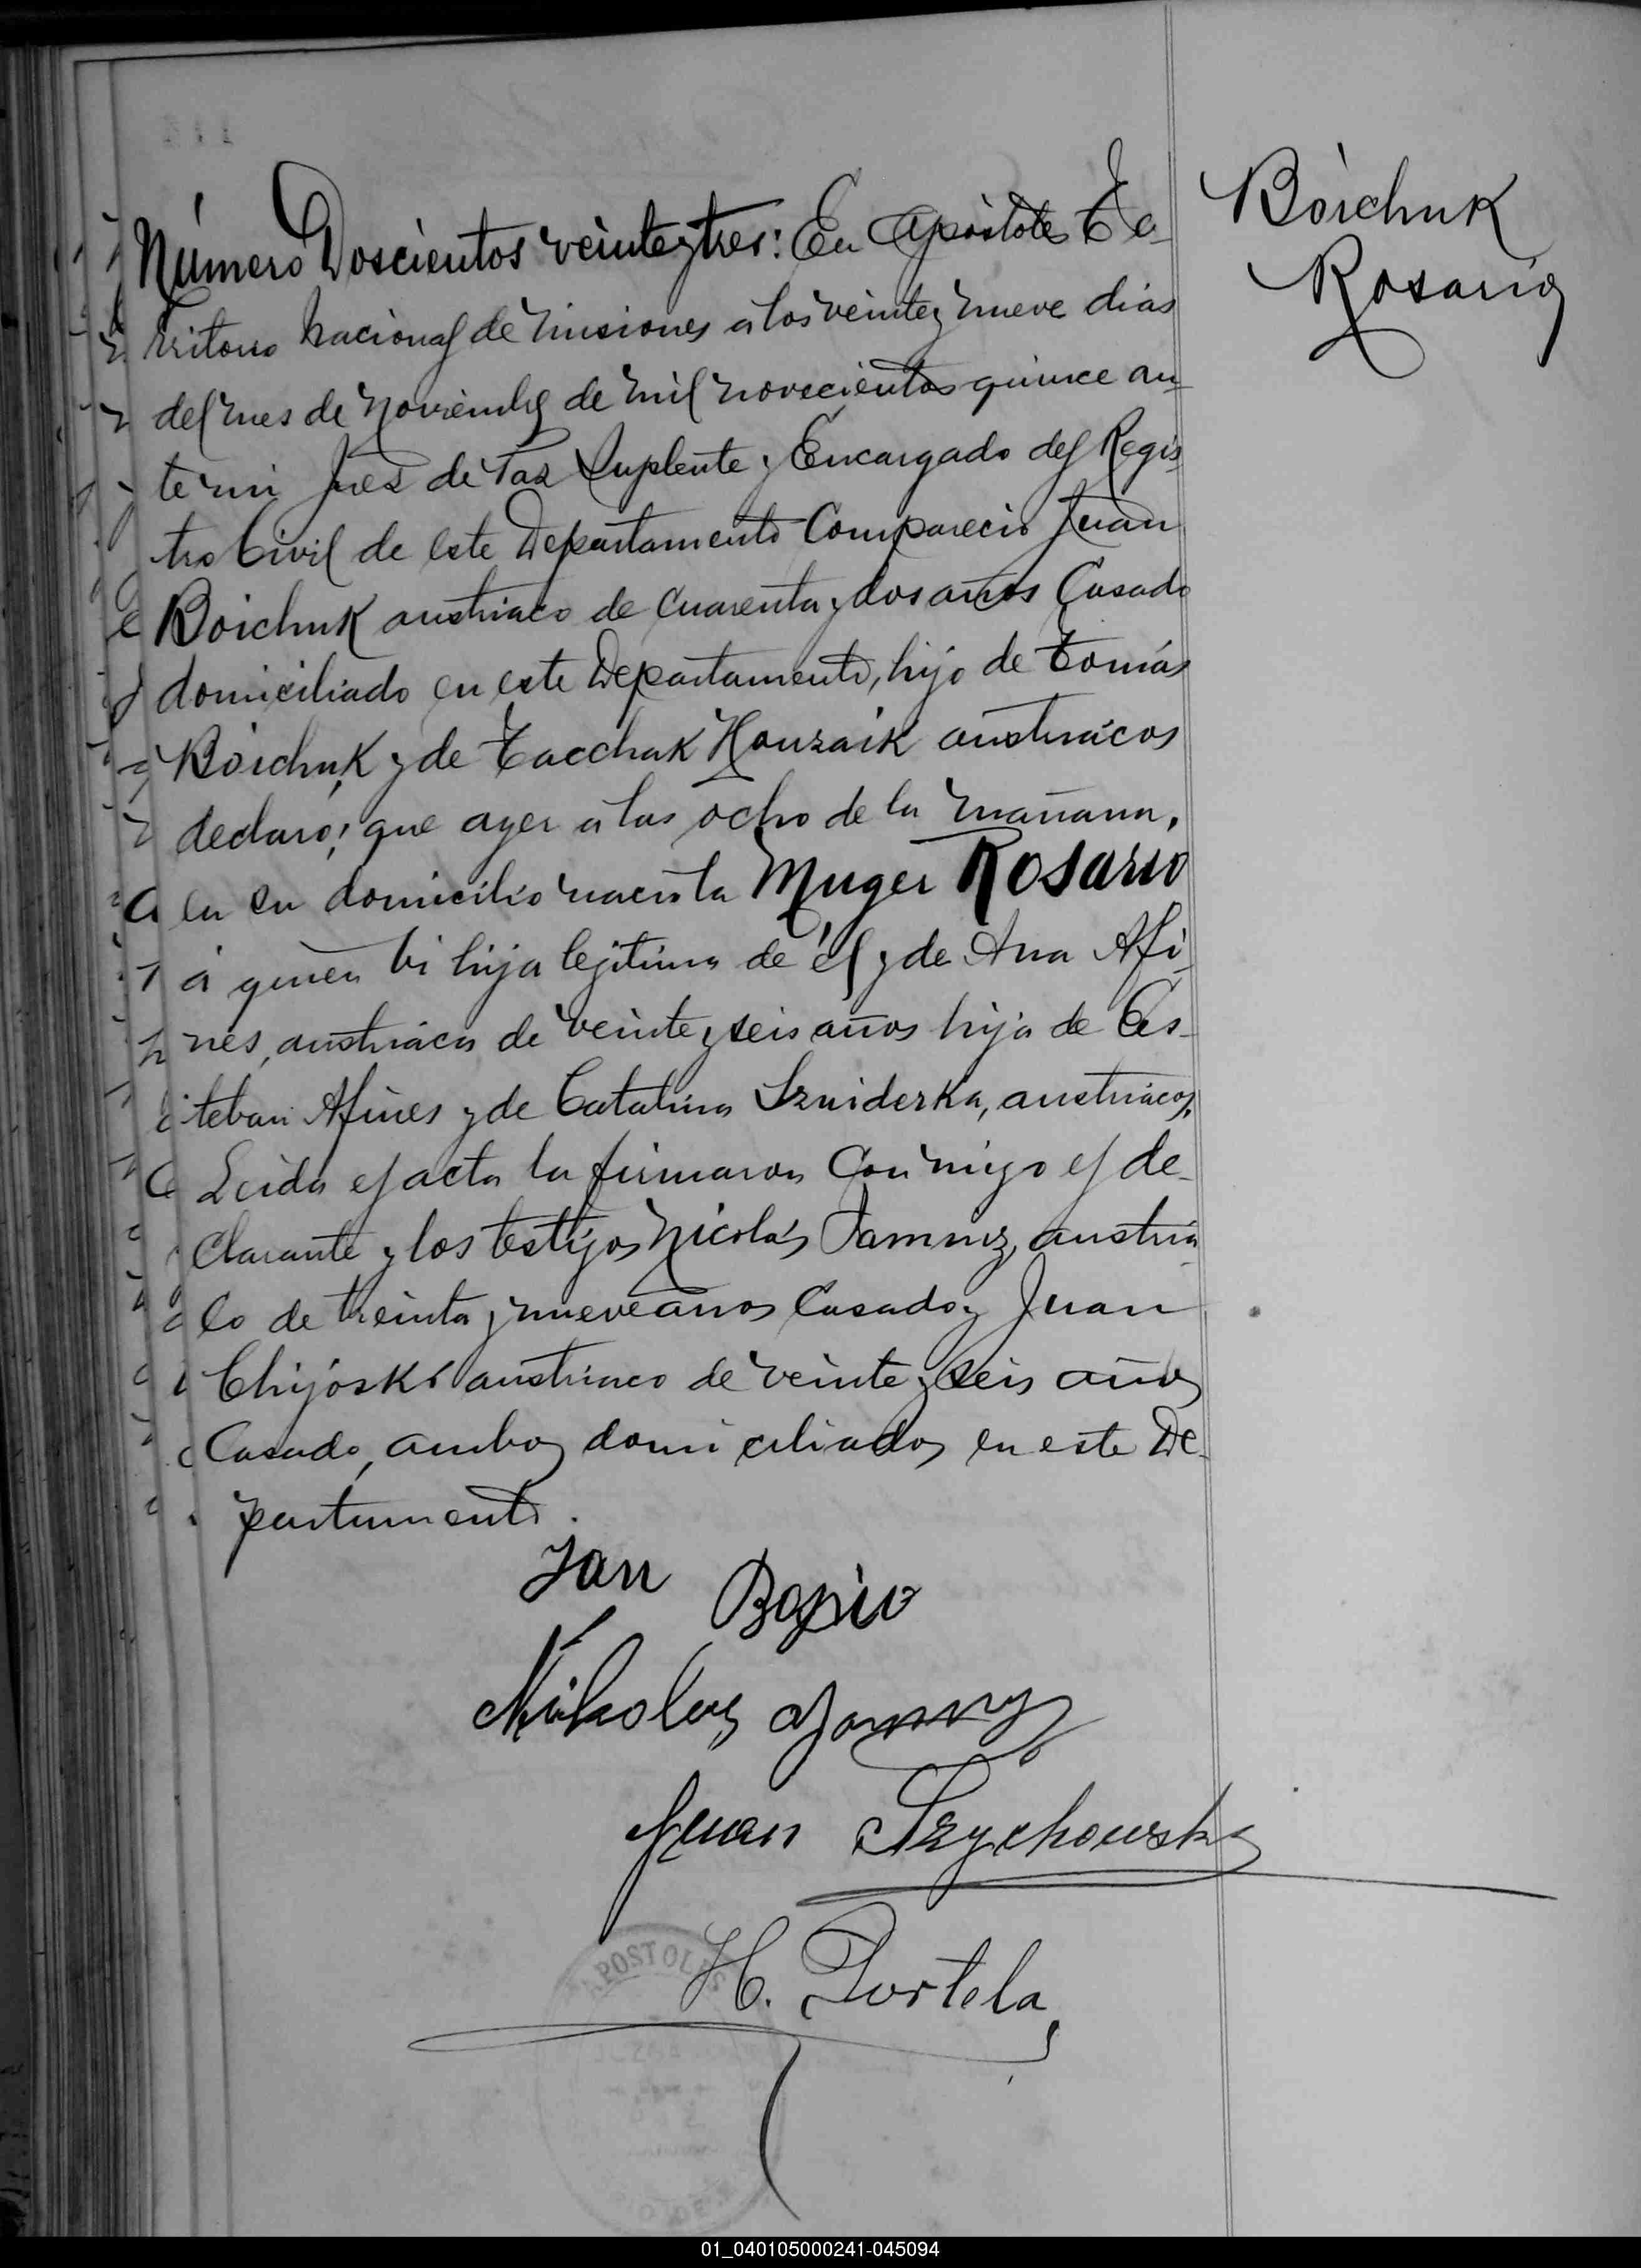 Boichuk
Rosario
Número Doscientos veinteytres: En Apóstoles Te-
rritorio Nacional de Misiones a los veintey nueve dias
del mes de Noviembre de mil novecientos quince an-
te mi Juez de Paz Suplente y Encargado del Regis
tro Civil de este Departamento Compareció Juan
Boichuk austriaco de cuarenta y dos años Casado
domiciliado en este Departamento, hijo de Tomás
Boichuk y de Tacchuk Houzaik austriácos
declaró; que ayer a las ocho de la mañana,
en su domicilio nació la Muger Rosario
á quien vi hija legitima de él y de Ana Afi-
nes, austriaca de veinte y seis años hija de Es-
teban Afines y de Catalina Szniderka, austriacos,
Leida el acta la firmaron Conmigo el de-
clarante y los testigos Nicolás austria
co de treinta y nueve años Casado y Juan
Chijoski austriaco de veinte y seis años
Casado, ambos domiciliados en este De-
partamento.
Jan
Nikolas
Juan Szychowski
H. Portela
APOSTOLES
01_040105000241-045094